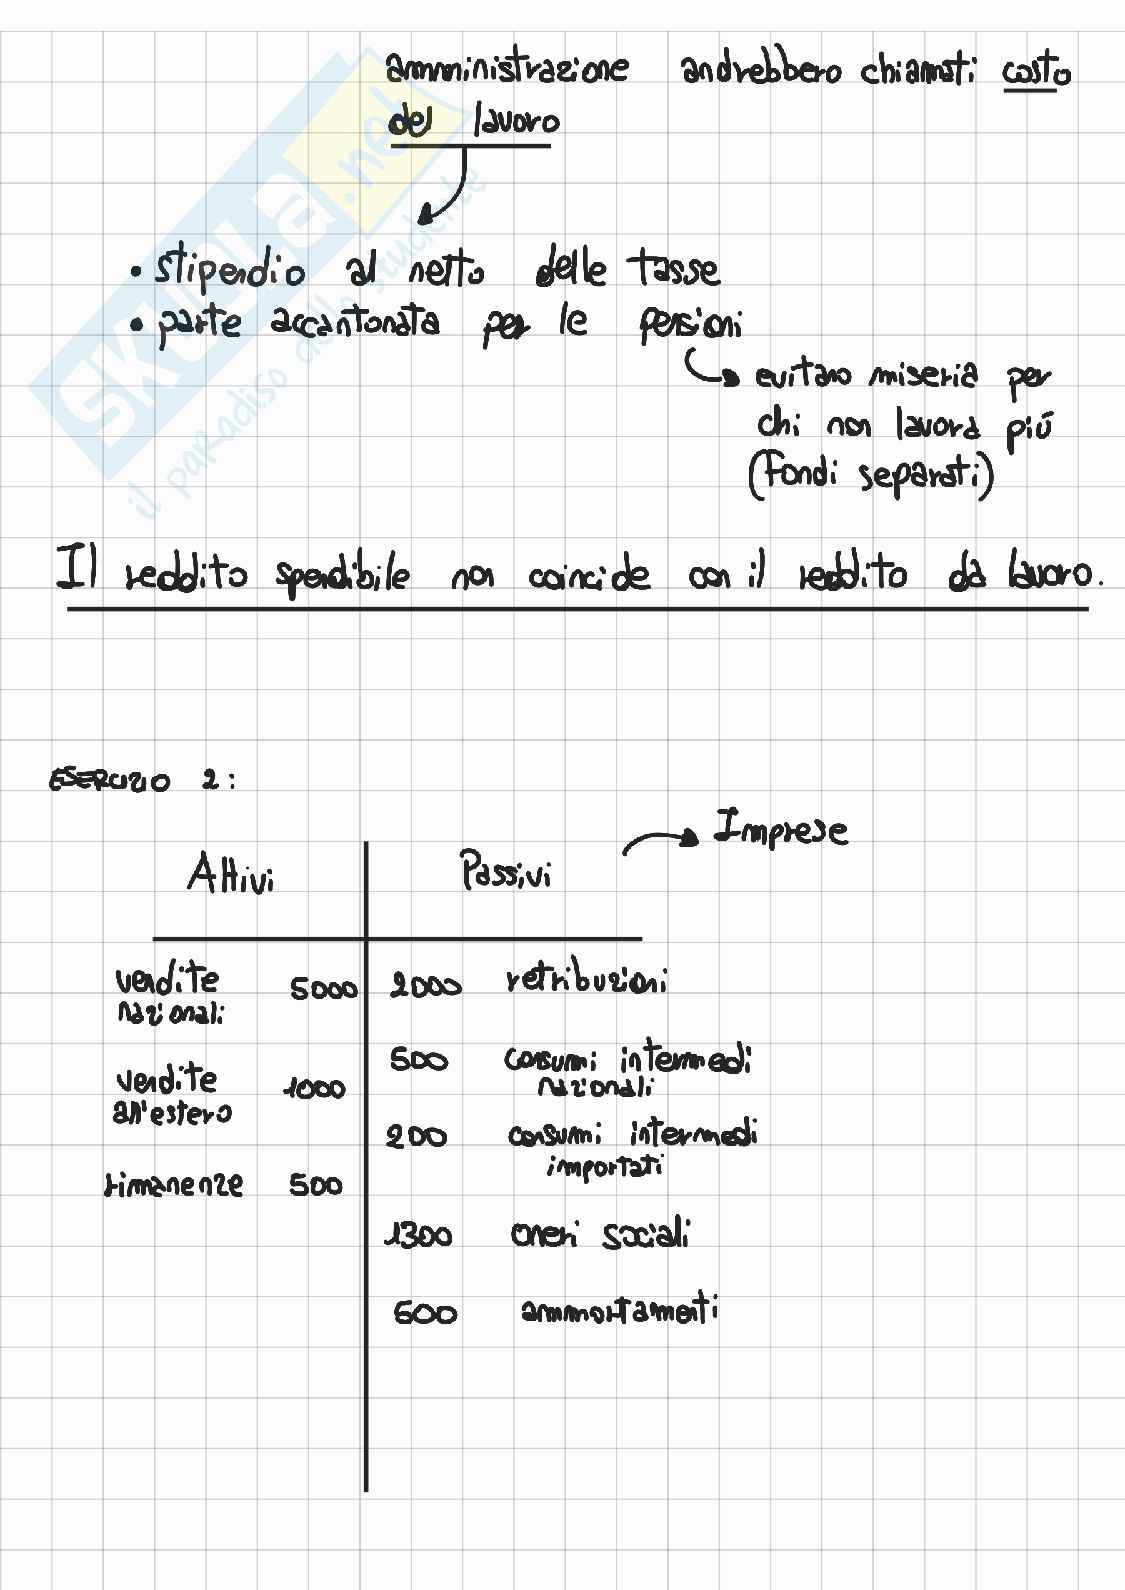 amministrazione andrebbero chiamati costo
del lavoro
• stipendio al netto delle tasse
• parte accantonata per le pensioni
evitano miseria per
chi non lavora più
(fondi separati)
Il reddito spendibile non coincide con il reddito da lavoro.
ESERCIZIO 2:
Imprese
Attivi Passivi
vendite nazionali 5000 2000 retribuzioni
500 consumi intermedi nazionali
vendite all'estero 1000
200 consumi intermedi importati
rimanenze 500
1300 oneri sociali
600 ammortamenti
SKUOLA.net
il paradiso dello studente